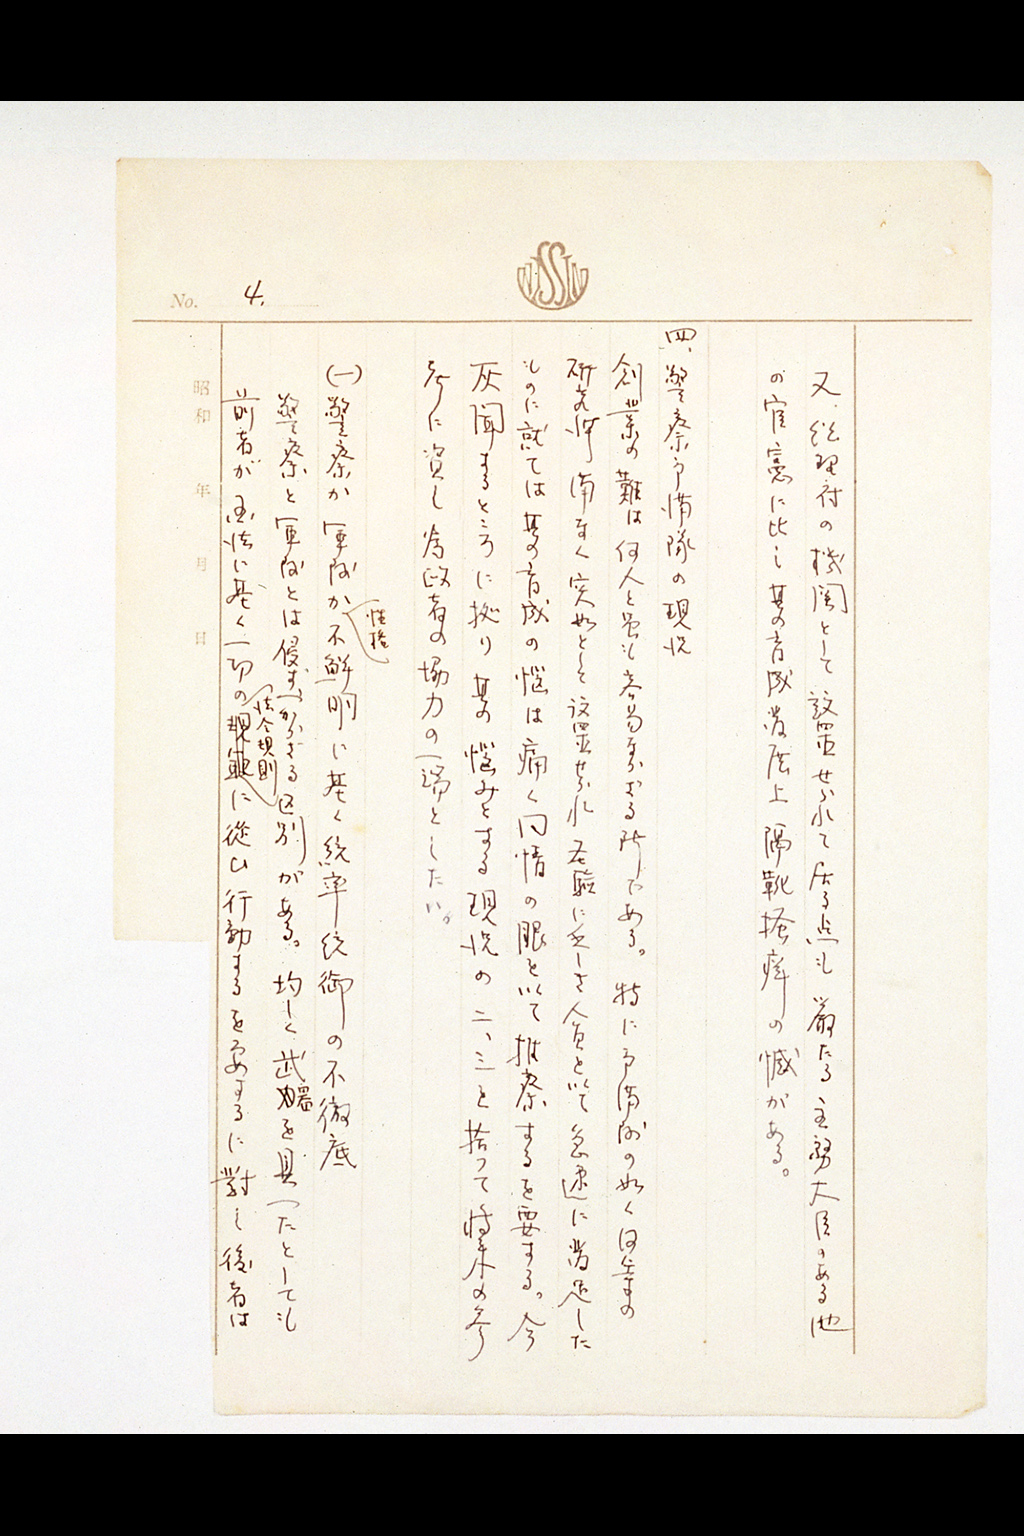 NISSIN
No. 4.
又、総理府の機関として設置せられて居る点も厳たる主務大臣のある他
の官憲に比し其の育成発展上隔靴掻痒の憾がある。
四、警察予備隊の現況
創業の難は何人と雖も容易ならざる所である。特に予備隊の如く何等の
研究準備なく突如として設置せられ経験に乏しき人員を以て急速に発足した
ものに就ては其の育成の悩は痛く同情の眼を以て推察するを要する。今
仄聞するところに拠り其の悩みとする現況の二、三を拾って将来の参
考に資し為政者の協力の一端としたい。
(一)警察か軍隊か性格不鮮明に基く統率統御の不徹底
警察と軍隊とは侵すべからざる区別がある。均しく武器を具へたとしても
前者が国法に基く一切の法令規則に從ひ行動するを要するに對し後者は
昭和 年 月 日